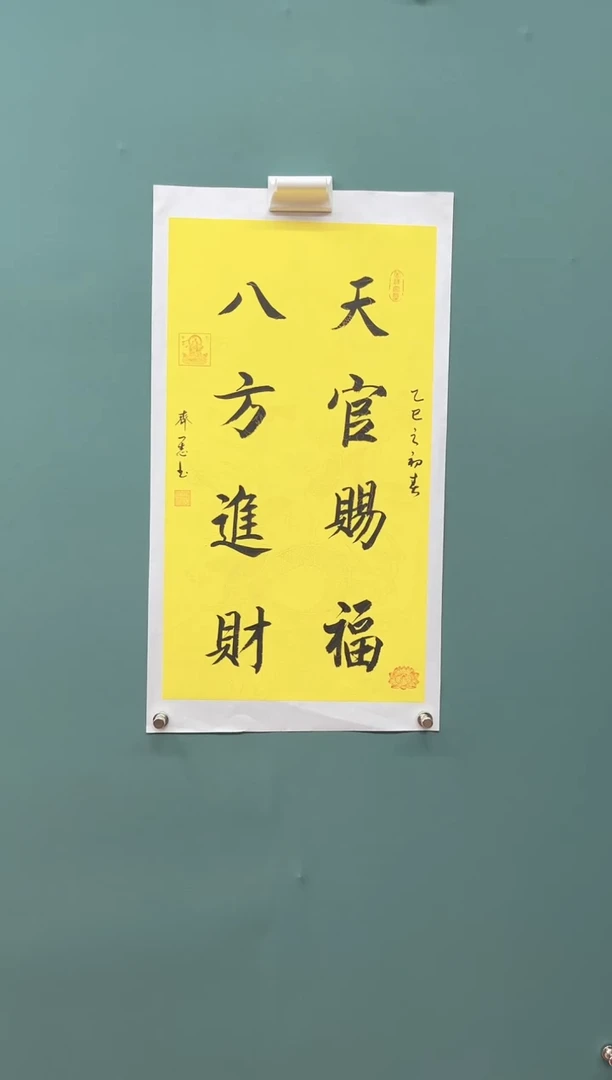 乙巳之初春
天官賜福
八方進財